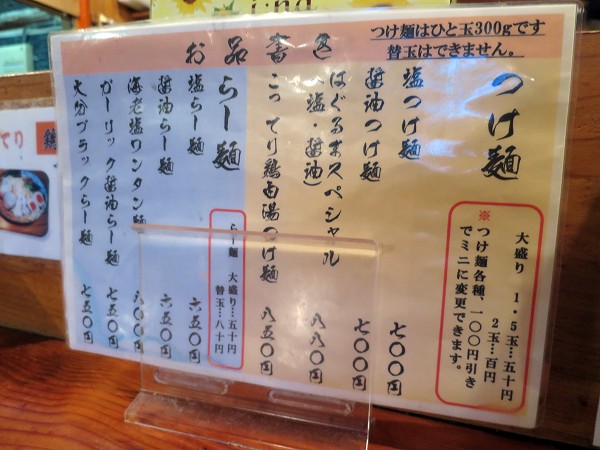 お品書き
つけ麺はひと玉300gです
替玉はできません。
つけ麺
大盛り 1・5玉…五十円
2玉…百円
※つけ麺各種、一〇〇円引き
でミニに変更できます。
塩つけ麺 七〇〇円
醤油つけ麺 七〇〇円
はぐるまスペシャル
(塩・醤油) 八八〇円
こってり鶏白湯つけ麺 八五〇円
らー麺
らー麺 大盛り…五十円
替玉…八十円
塩らー麺 六五〇円
醤油らー麺 六五〇円
海老塩ワンタン麺 八〇〇円
ガーリック醤油らー麺 七五〇円
大分ブラックらー麺 七五〇円
てり 鶏